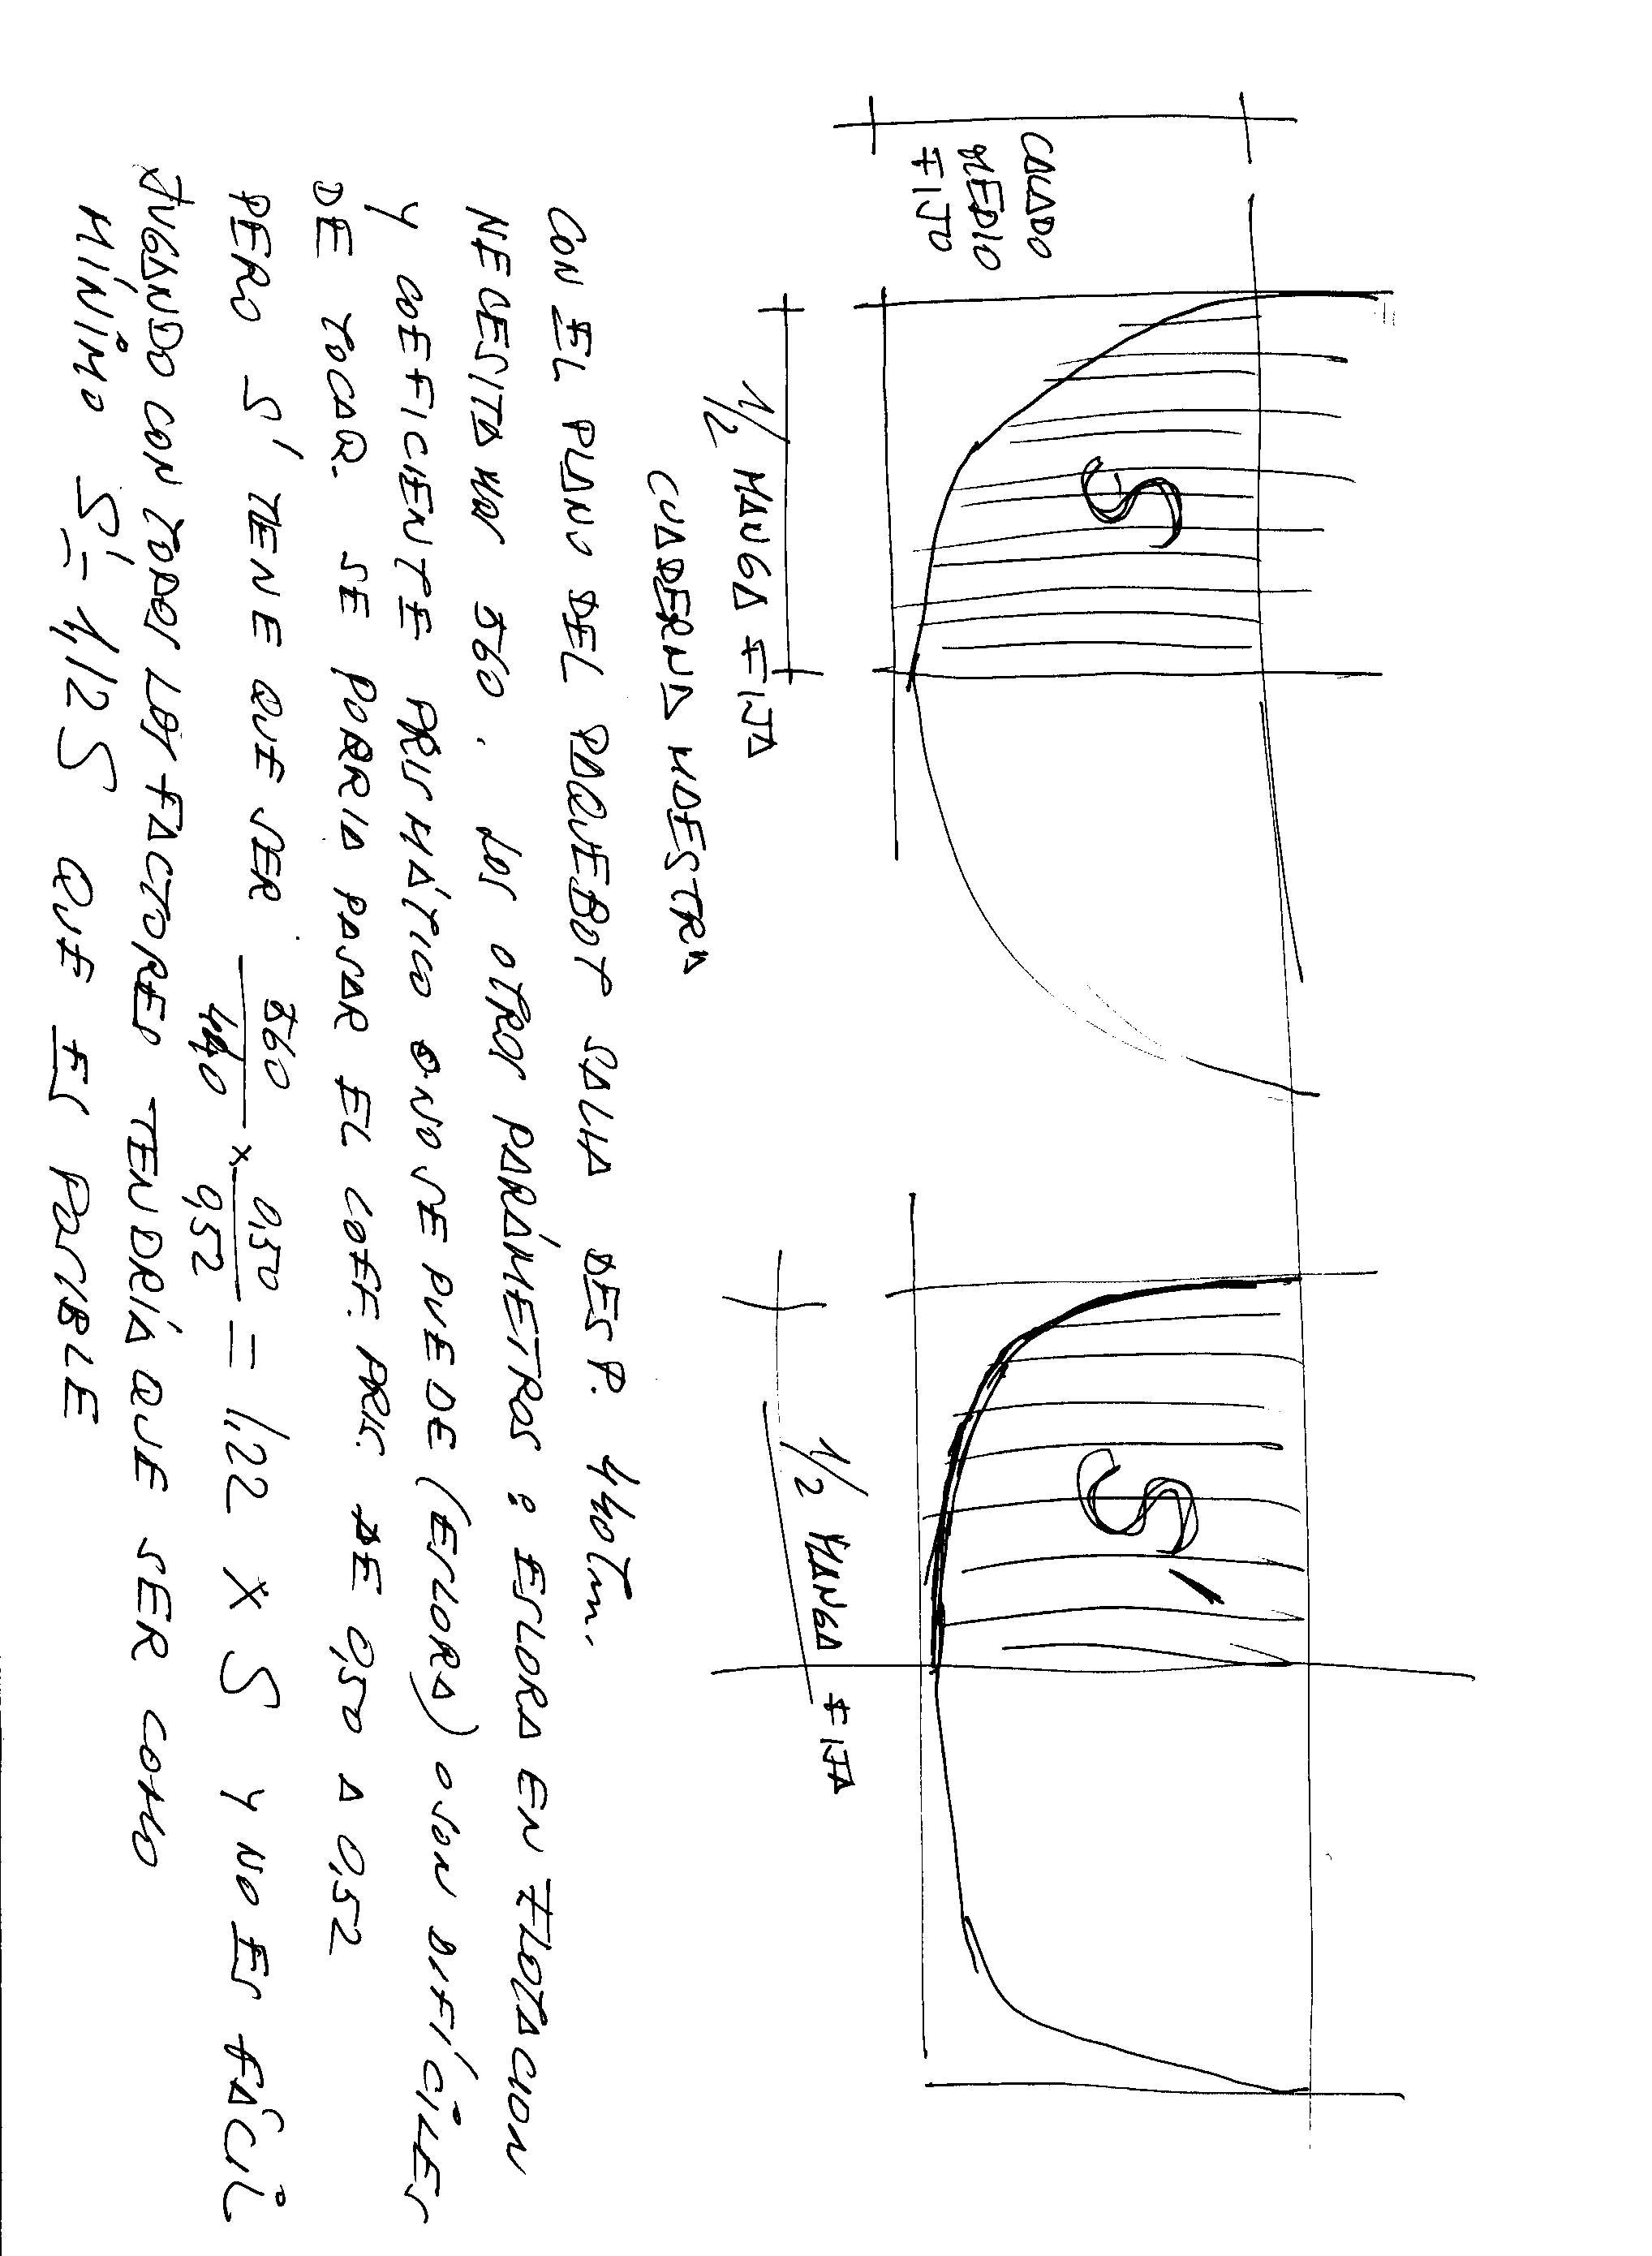 CALADO
MEDIO
FIJO
S
1/2 MANGA FIJA
CUADERNA MAESTRA
S'
1/2 MANGA FIJA
CON EL PLANO DEL PAQUEBOT SALIA DESP. 440Tm.
NECESITAMOS 560. LOS OTROS PARÁMETROS: ESLORA EN FLOTACION
Y COEFICIENTE PRISMÁTICO O NO SE PUEDE (ESLORA) O SON DIFÍCILES
DE TOCAR. SE PODRIA PASAR EL COEF. PRIS. DE 0,50 A 0,52
PERO S' TIENE QUE SER 560/440 × 0,50/0,52 = 1,22 X S Y NO ES FÁCIL
JUGANDO CON TODOS LOS FACTORES TENDRÍA QUE SER COMO
MÍNIMO S' = 1,12 S QUE ES POSIBLE